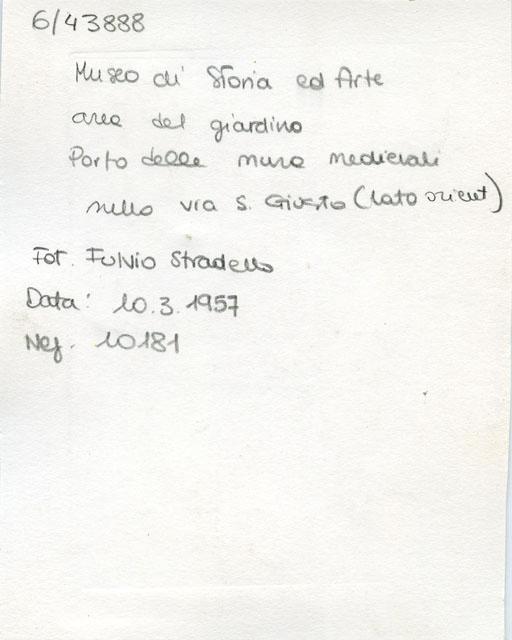 6/43888
Museo di Storia ed Arte
area del giardino
Porto delle mura medievali
nello via S. Giusto (lato orient)
Fot. Fulvio Stradello
Data: 10.3.1957
Neg. 10181